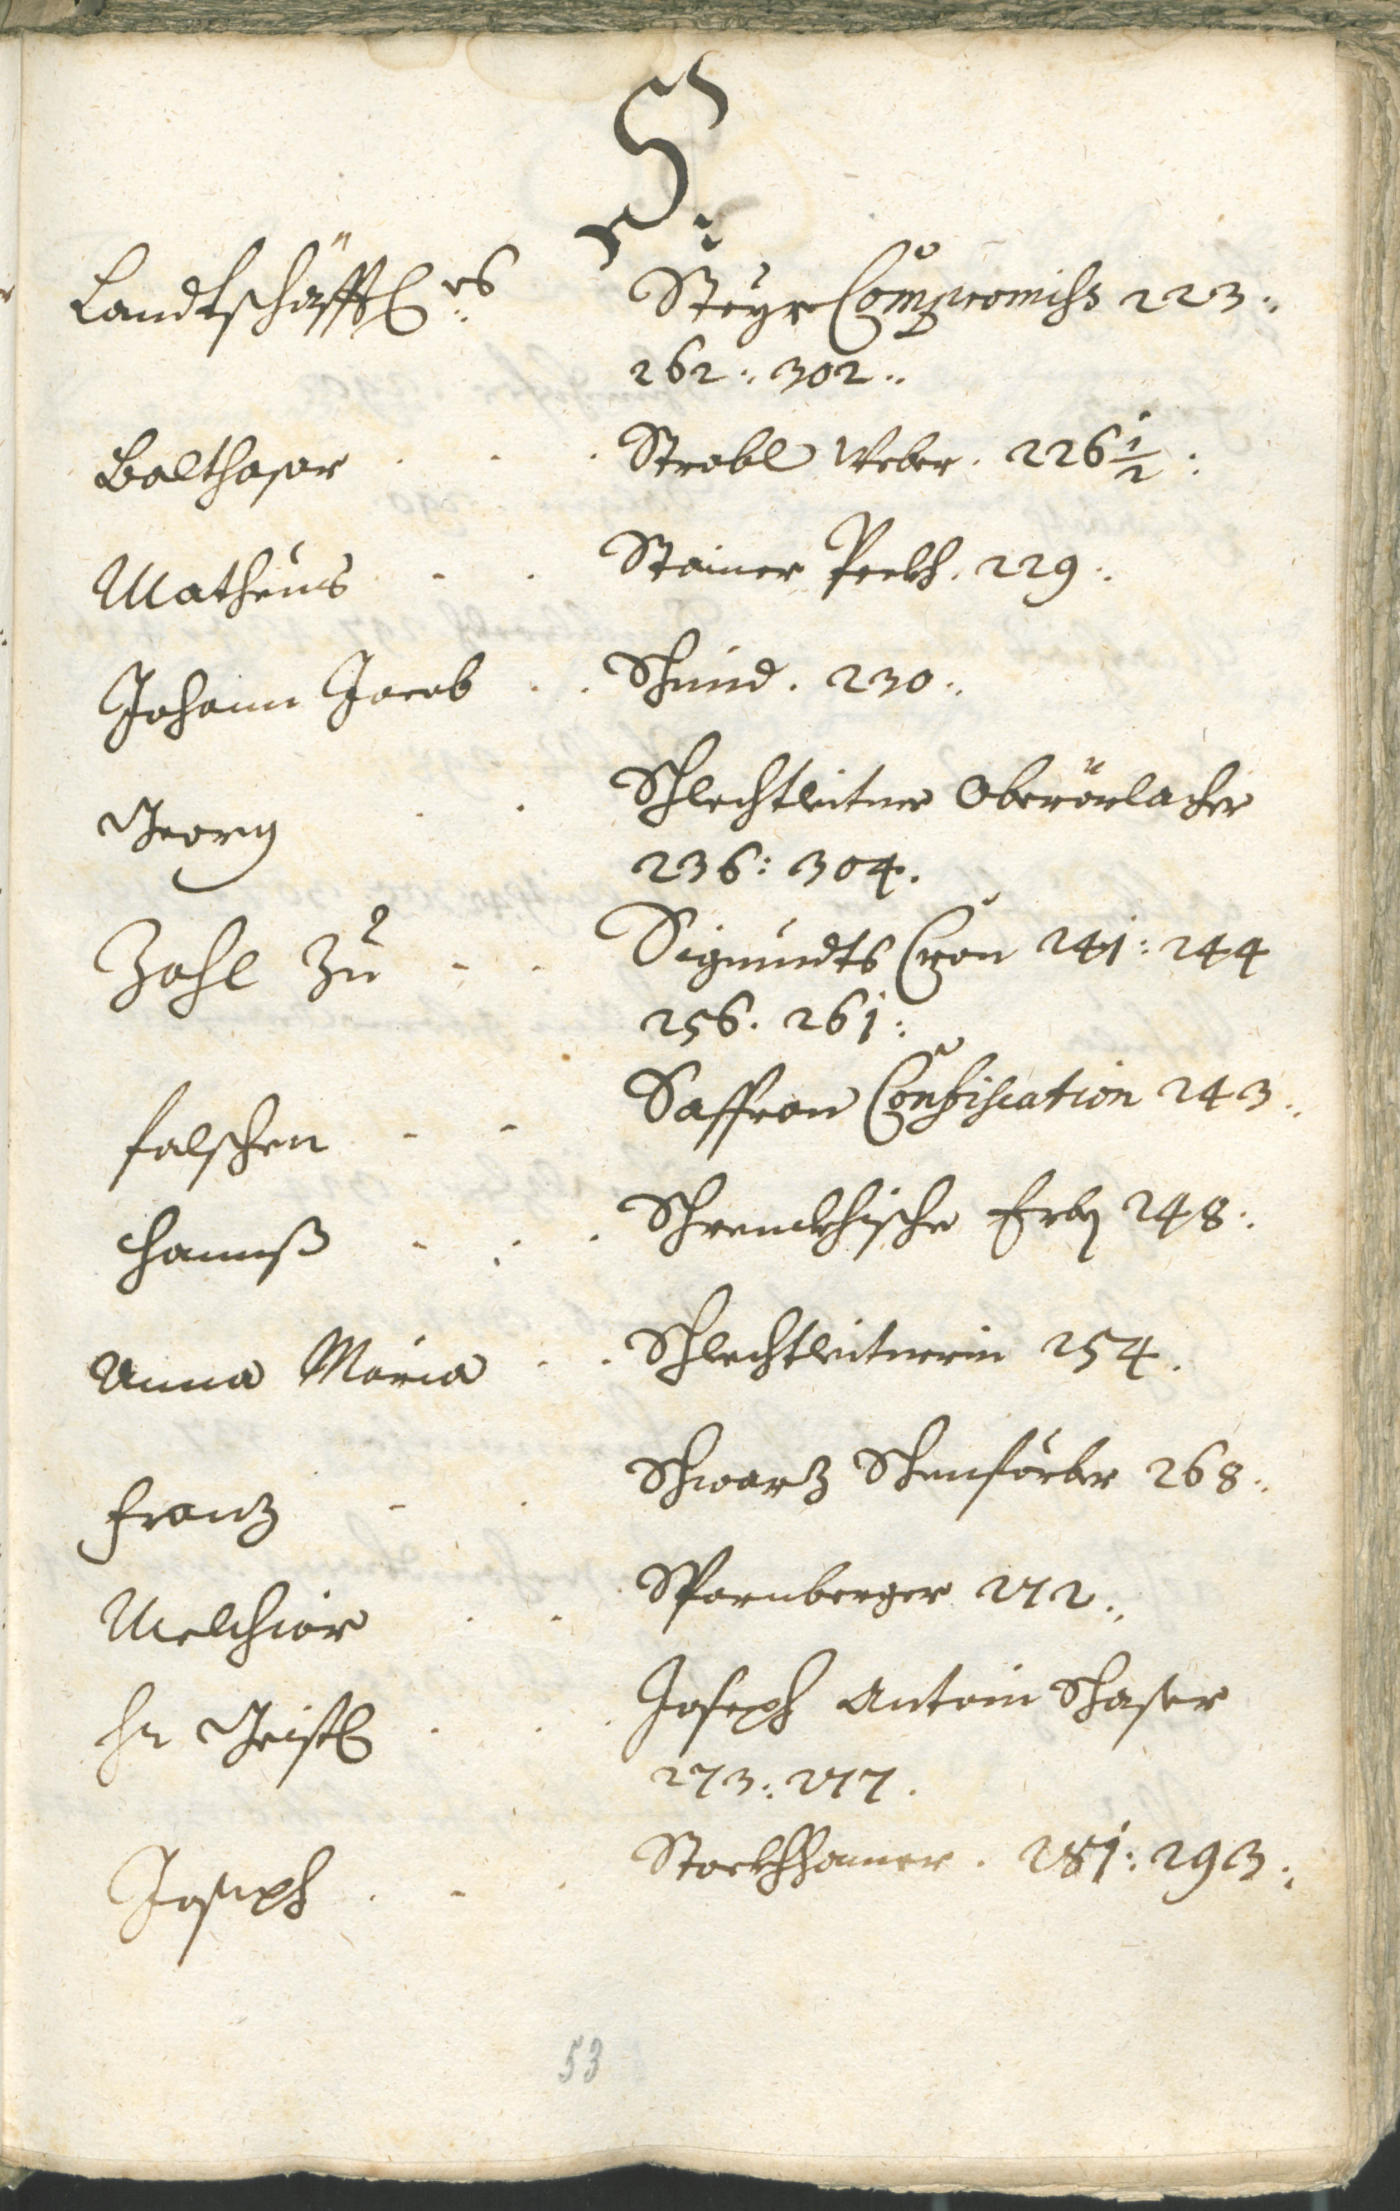 S.
Landtschäfftl:es Steyr Compromiss 223:
262: 302:
Balthasar . . . Strobl Weber. 226 1/2:
Matheus - . Stainer Peckh. 229:
Johann Jacob . . Schmid. 230:
Georg . . Schlechtleitner Oberörlacher
236: 304.
Zohl zu - . Sigmundts Cron 241: 244
256. 261:
falschen - - Saffran Confiscation 243:
Hannß - . . Schrenckhische Erb 248:
Anna Maria . . Schlechtleitnerin 254.
Franz - . Schwartz Schenförber 268:
Melchior . . Spornberger 272:
Hr Geistl . . Joseph Antoni Schaser
273: 277.
Joseph . - . Stockhhamer. 281: 293:
53